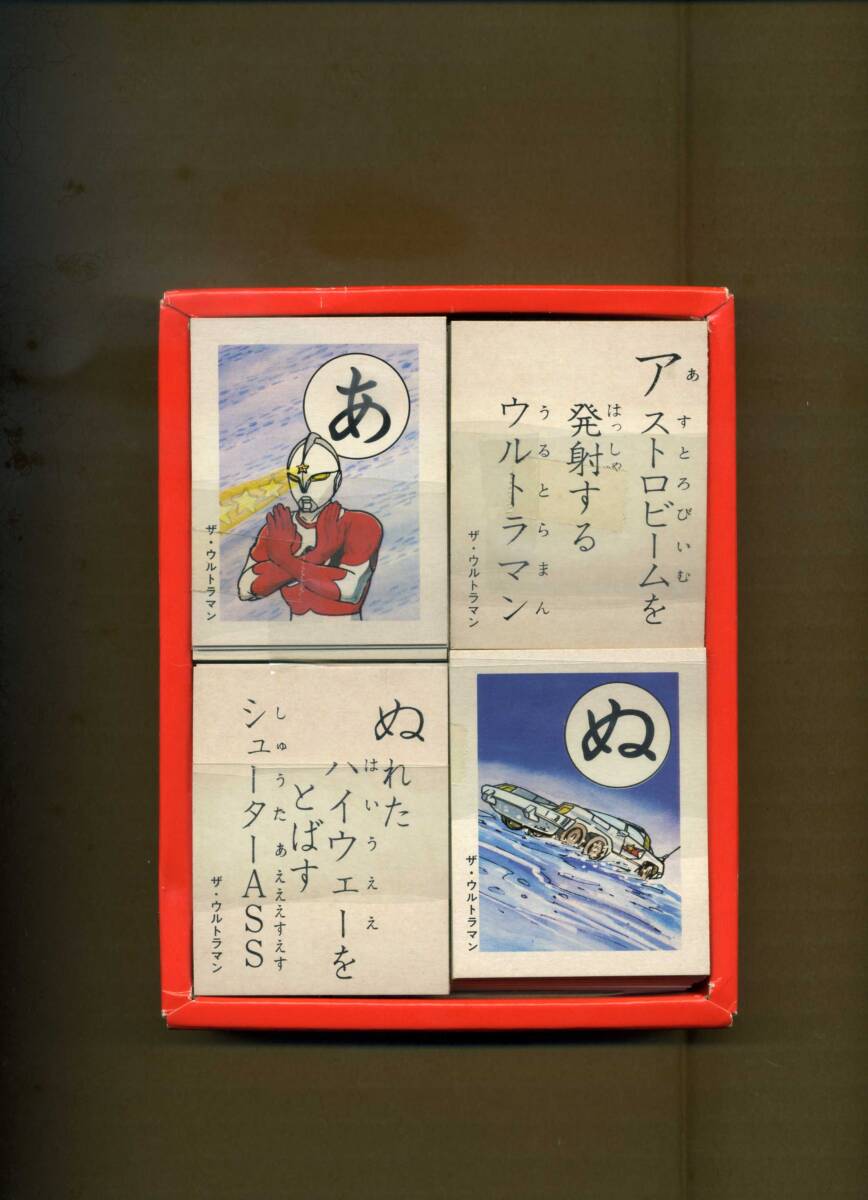 あ
ザ・ウルトラマン
アストロビームを
あすとろびいむ
発射する
はっしゃ
ウルトラマン
うるとらまん
ザ・ウルトラマン
ぬれた
ハイウェーを
はいうええ
とばす
シューターASS
しゅうたあええすえす
ザ・ウルトラマン
ぬ
ザ・ウルトラマン